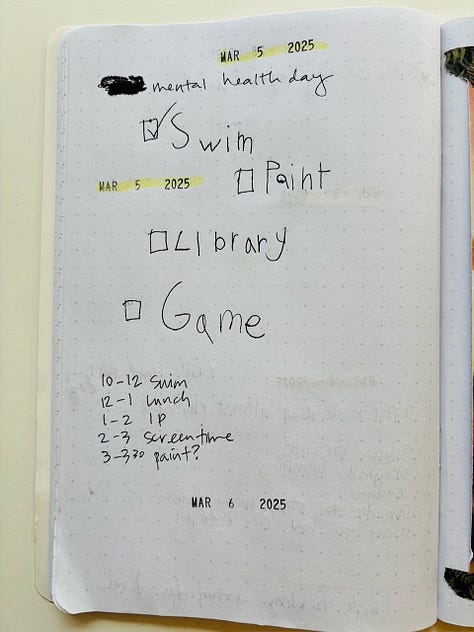 MAR 5 2025
mental health day
Swim
Paint
MAR 5 2025
Library
Game
10-12 Swim
12-1 Lunch
1-2 IP
2-3 screentime
3-3³⁰ paint?
MAR 6 2025